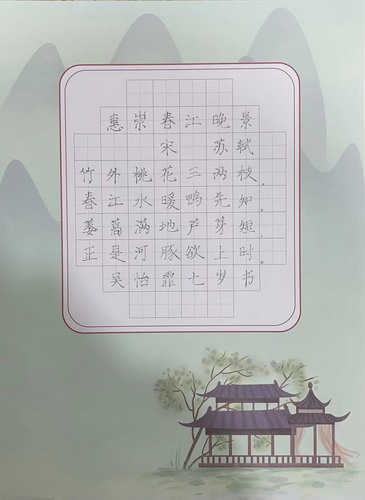 惠崇春江晚景
宋 苏轼
竹外桃花三两枝，
春江水暖鸭先知。
蒌蒿满地芦芽短，
正是河豚欲上时。
吴怡霏七岁书